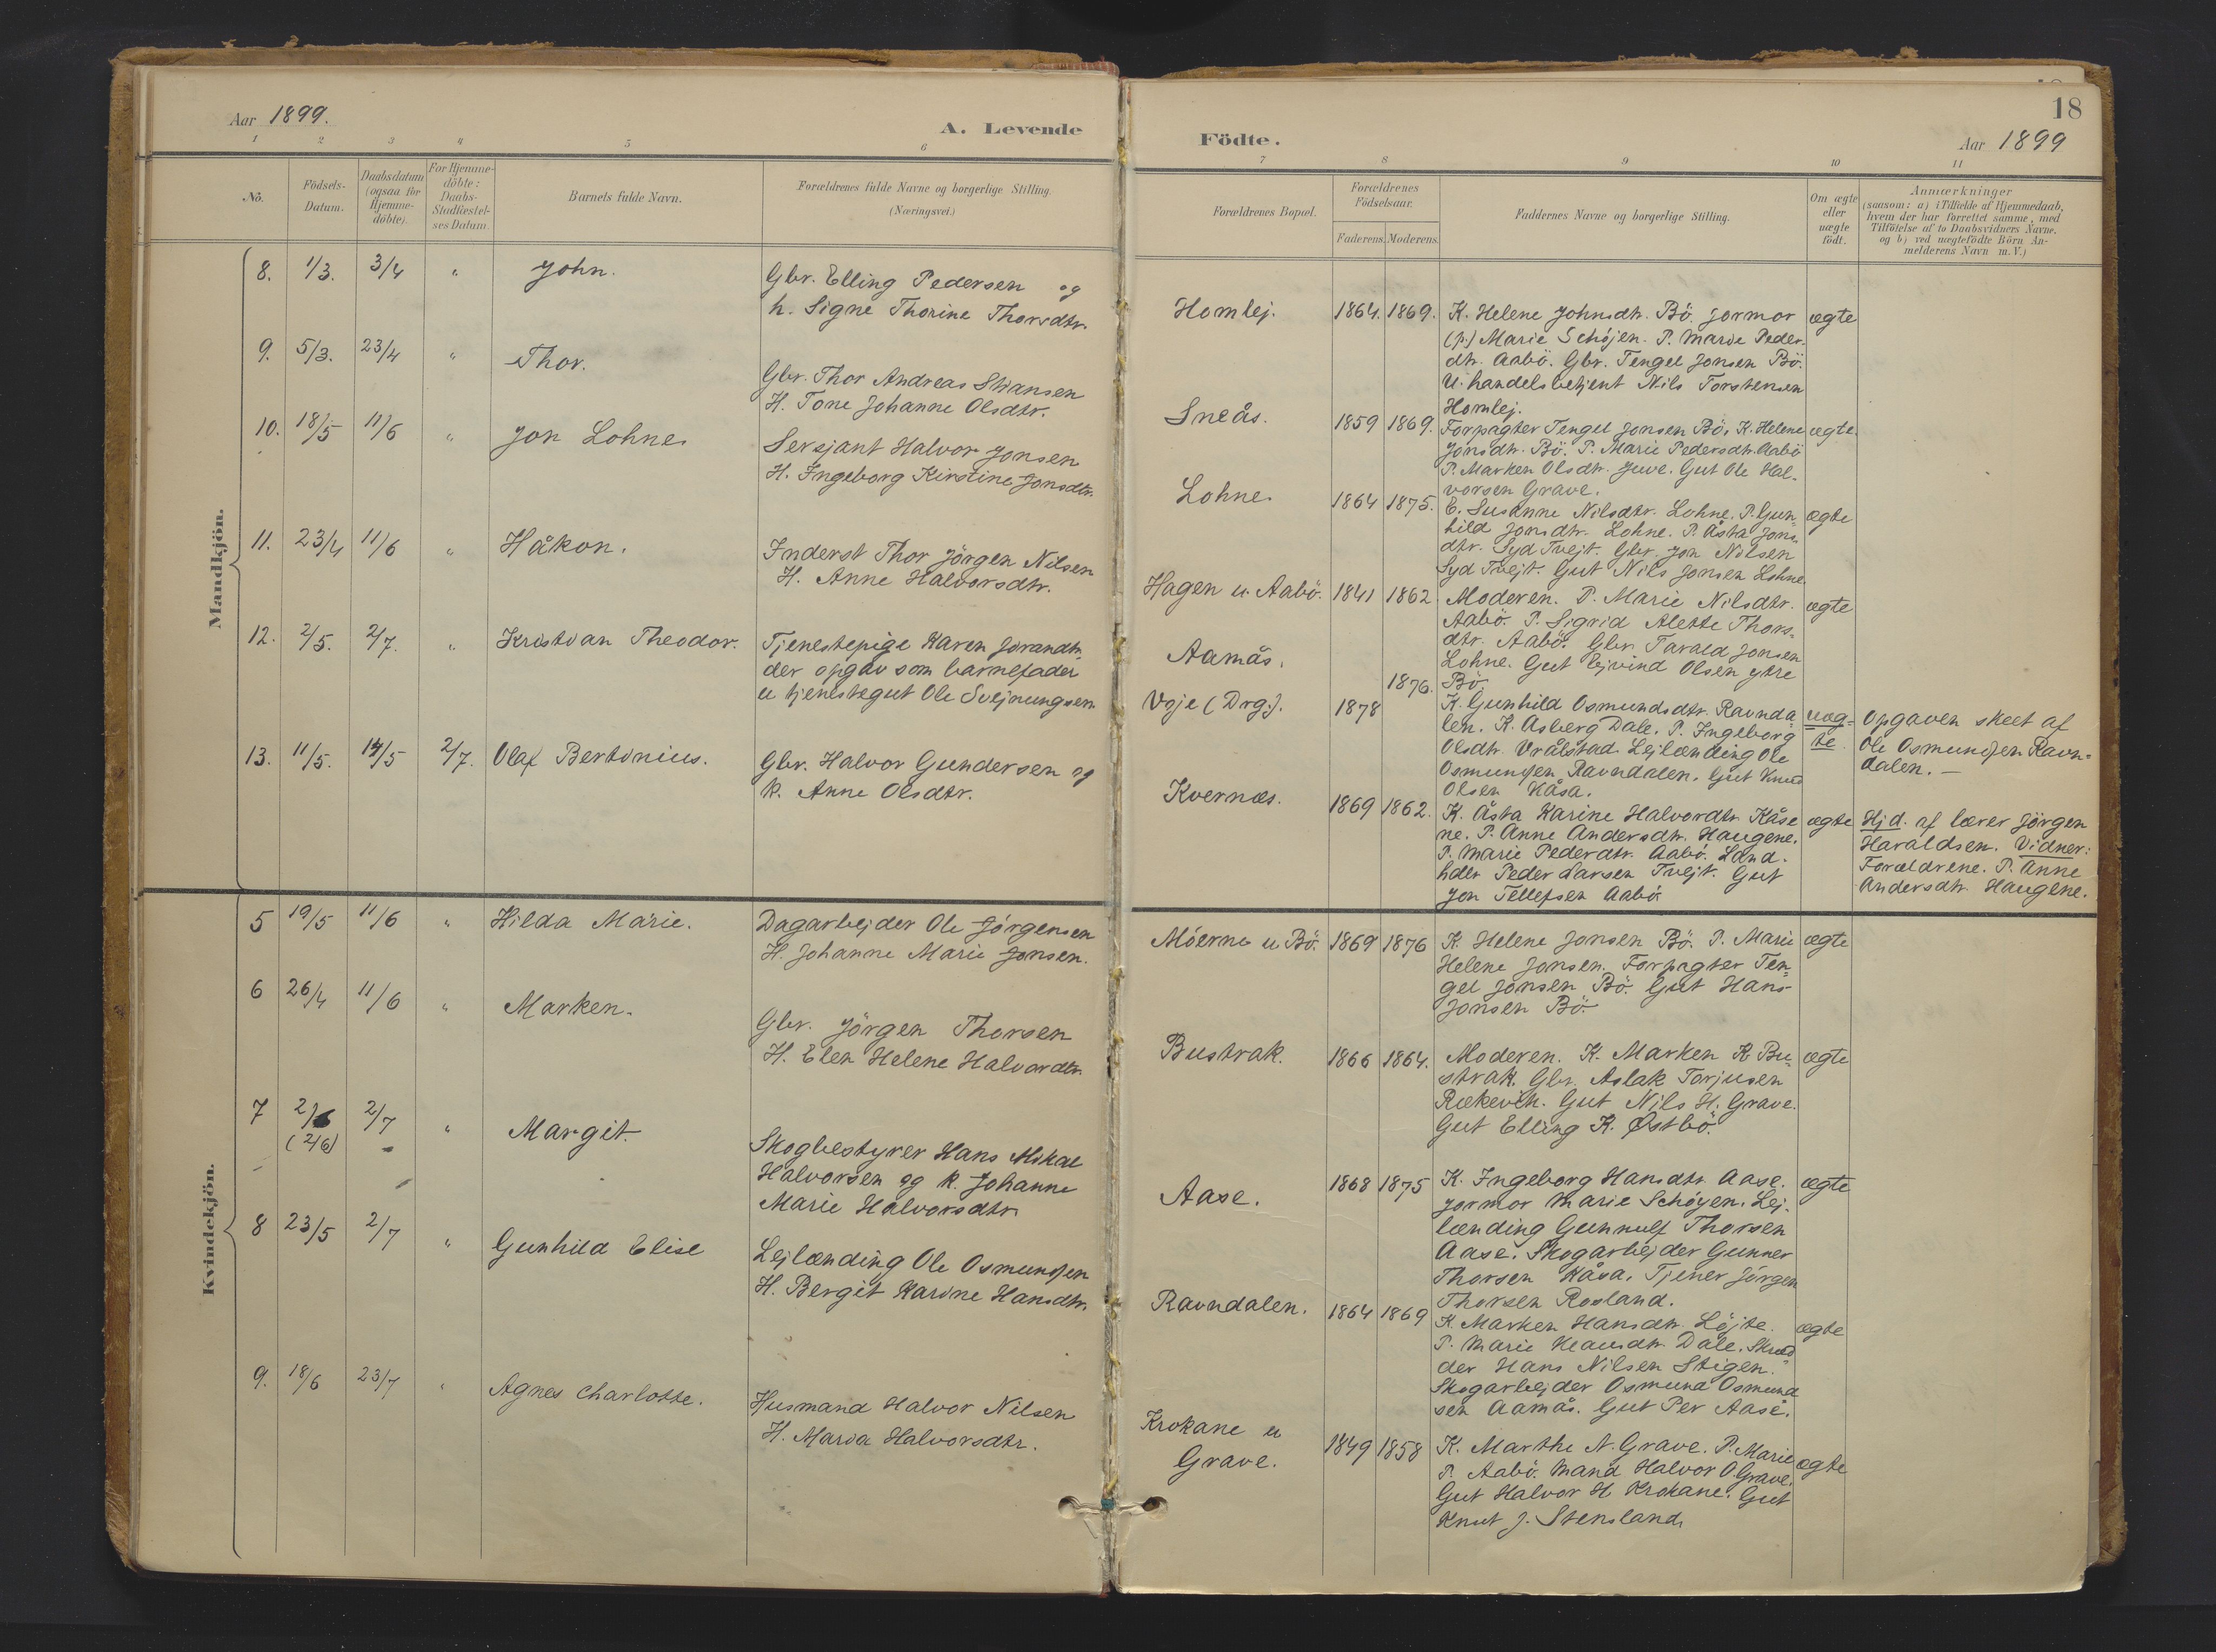 Aar 1899.
A. Levende
1 2 3 4 5 6
No.
Födsels-
Datum.
Daabsdatum
(ogsaa for
Hjemme-
döbte).
For Hjemme-
döbte:
Daabs-
Stadfæstel-
ses Datum.
Barnets fulde Navn.
Forældrenes fulde Navne og borgerlige Stilling.
(Næringsvei.)
Mandkjön.
8. 1/3. 3/4 " John.
Gbr. Elling Pedersen og
h. Signe Thorine Thorsdtr.
9. 5/3. 23/4 " Thor.
Gbr. Thor Andreas
H. Tone Johanne Olsdtr.
10. 18/5 11/6 " Jon Lohne.
Sersjant Halvor Jonsen
H. Ingeborg Kirstine Jonsdtr.
11. 23/4 11/6 " Håkon.
Inderst Thor Jörgen Nilsen
H. Anne Halvorsdtr.
12. 2/5. 2/7. " Kristian Theodor.
Tjenestepige Karen Jorandtr.
der opgav som barnefader
u tjenestegut Ole Svejnungsen
13. 11/5. 14/5 2/7. Olaf Bertinius.
Gbr. Halvor Gundersen og
k. Anne Olsdtr.
Kvindekjön.
5 19/5 11/6 " Hilda Marie.
Dagarbejder Ole Jörgensen
H. Johanne Marie Jonsen.
6 26/4 11/6 " Marken.
Gbr. Jörgen Thorsen
H. Elen Helene Halvordtr.
7 2/6 2/7 " Margit.
(2/6)
Skogbestyrer Hans Mikal
Halvorsen og k. Johanne
Marie Halvorsdtr.
8 23/5 2/7 " Gunhild Elise
Lejlænding Ole Osmundsen
H. Bergit Karine Hansdtr.
9. 18/6 23/7 " Agnes Charlotte.
Husmand Halvor Nilsen
H. Maria Halvorsdtr.
18
Födte.
Aar 1899
7 8 9 10 11
Forældrenes Bopæl.
Forældrenes
Födselsaar.
Faderens. Moderens.
Faddernes Navne og borgerlige Stilling.
Om ægte
eller
uægte
födt.
Anmærkninger
(saasom: a) i Tilfælde af Hjemmedaab,
hvem der har forrettet samme, med
Tilföielse af to Daabsvidners Navne.
og b) ved uægtefödte Börn An-
melderens Navn m. V.)
Homlej. 1864. 1869. K. Helene Johnsdtr. Bö. Jormor ægte
(p.) Marie Schöjen. P. Marie Peder-
dtr. Aabö. Gbr. Tengel Jonsen Bö.
U. handelsbetjent Nils Torstensen
Homlej.
Sneås. 1859 1869. Forpagter Tengel Jonsen Bö, K. Helene ægte.
Jonsdtr. Bö. P. Marie Pedersdtr. Aabö
P. Marken Olsdtr. Juve. Gut Ole Hal-
vorsen Grave.
Lohne. 1864 1875. E. Susanne Nilsdtr. Lohne. P. Gun- ægte
hild Jonsdtr. Lohne. P. Åsta Jons-
dtr. Syd Tvejt. Gbr. Jon Nilsen
Syd Tvejt. Gut Nils Jonsen Lohne.
Hagen u. Aabö. 1841 1862 Moderen. P. Marie Nilsdtr. ægte
Aabö. P. Sigrid Alette Thors-
dtr. Aabö. Gbr. Tarald Jonsen
Lohne. Gut Ejvind Olsen ytre
Bö.
Aamås. 1876.
Voje (Drg.). 1878
K. Gunhild Osmundsdtr. Ravnda-
len. K. Asberg Dale. P. Ingeborg
Olsdtr. Vrålstad. Lejlænding Ole
Osmundsen Ravndalen. Gut Knud
Olsen Kåsa.
uæg-
te.
Opgaven skeet af
Ole Osmundsen Ravn-
dalen. —
Kvernæs. 1869 1862. K. Åsta Karine Halvordtr. Kåse ægte
ne. P. Anne Andersdtr. Haugene.
P. Marie Pederdtr. Aabö. Land-
hdlr Peder Larsen Tvejt. Gut
Jon Tellefsen Aabö.
Hjd. af lærer Jörgen
Haraldsen. Vidner:
Forældrene. P. Anne
Andersdtr. Haugene.
Möerne u Bö. 1869 1876 K. Helene Jonsen Bö. P. Marie ægte
Helene Jonsen. Forpagter Ten-
gel Jonsen Bö. Gut Hans
Jonsen Bö.
Bustrak. 1866 1864. Moderen. K. Marken K. Bu- ægte
strak. Gbr. Aslak Torjusen
Gut Nils H. Grave.
Gut Elling K. Østbö.
Aase. 1868 1875 K. Ingeborg Hansdtr. Aase. ægte
Jormor Marie Schöyen. Lej-
lænding Gunnulf Thorsen
Aase. Skogarbejder Gunner
Thorsen Kåsa. Tjener Jörgen
Thorsen Rosland.
Ravndalen. 1864 1869 K. Marken Hansdtr. Löjte. ægte
P. Marie Dale. Skræd-
der Hans Nilsen Stigen.
Skogarbejder Osmund Osmund
sen Aamås. Gut Per Aase.
Krokane u
Grave. 1849 1858 K. Marthe N. Grave. P. Marie ægte
P. Aabö. Mand Halvor O. Grave.
Gut Halvor H. Krokane. Gut
Knut J. Stensland.